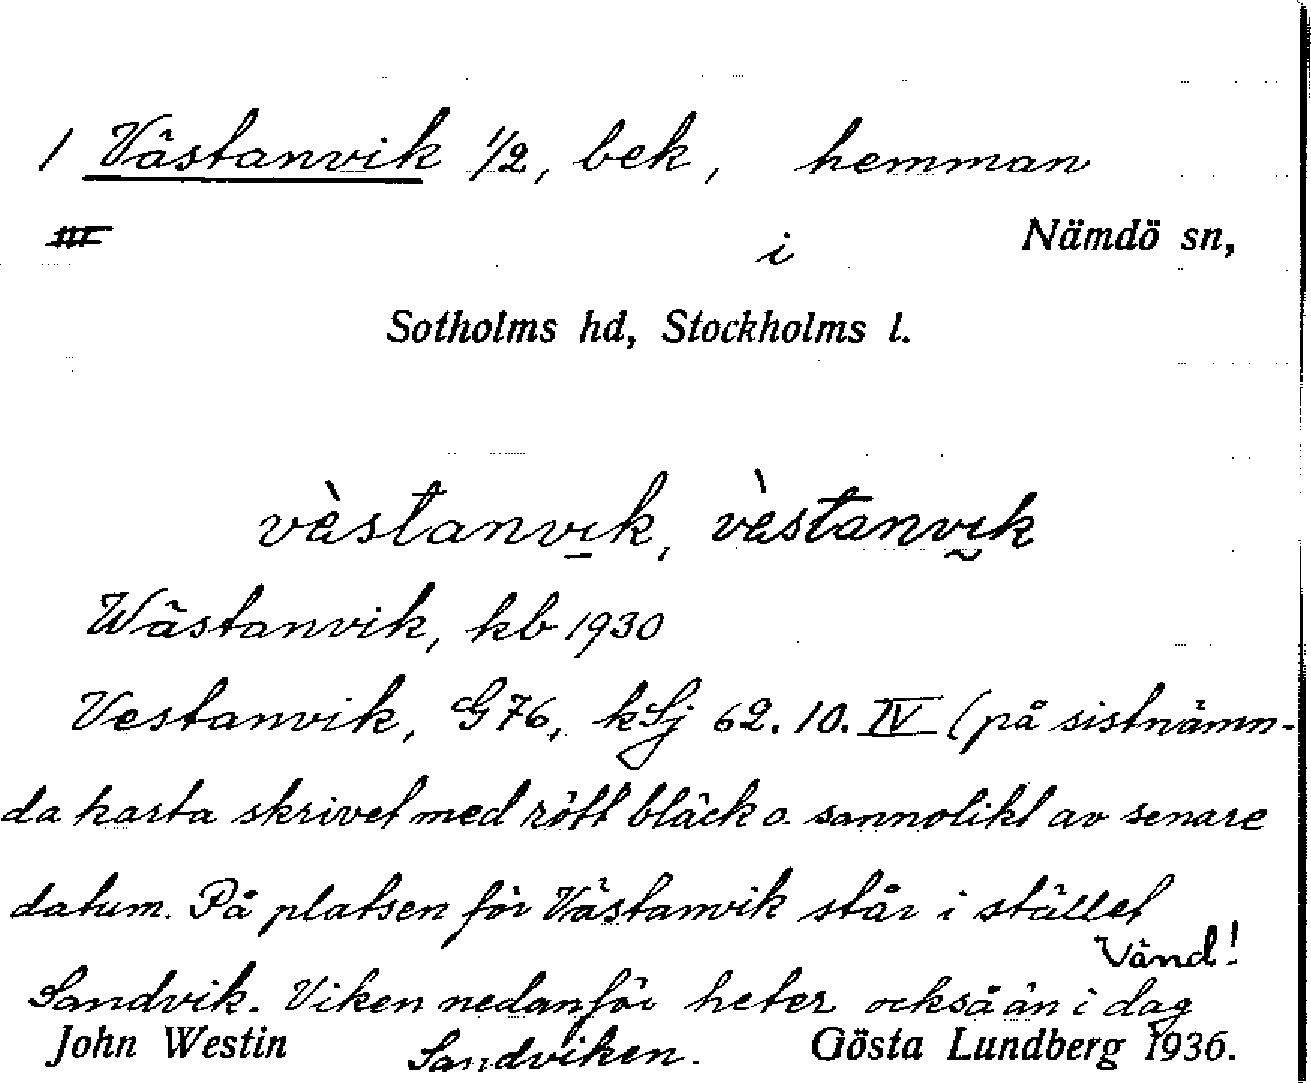 1 Västanvik 1/2, bek, hemman
i Nämdö sn,
Sotholms hd, Stockholms l.
vèstanvi̠k, vèstanvḭk
Wästanvik, kb 1930
Vestanvik, G76, kSj 62.10.IV (på sistnämn-
da karta skrivet med rött bläck o. sannolikt av senare
datum. På platsen för Västanvik står i stället
Vänd!
Sandvik. Viken nedanför heter också än i dag
Sandviken.
John Westin Gösta Lundberg 1936.